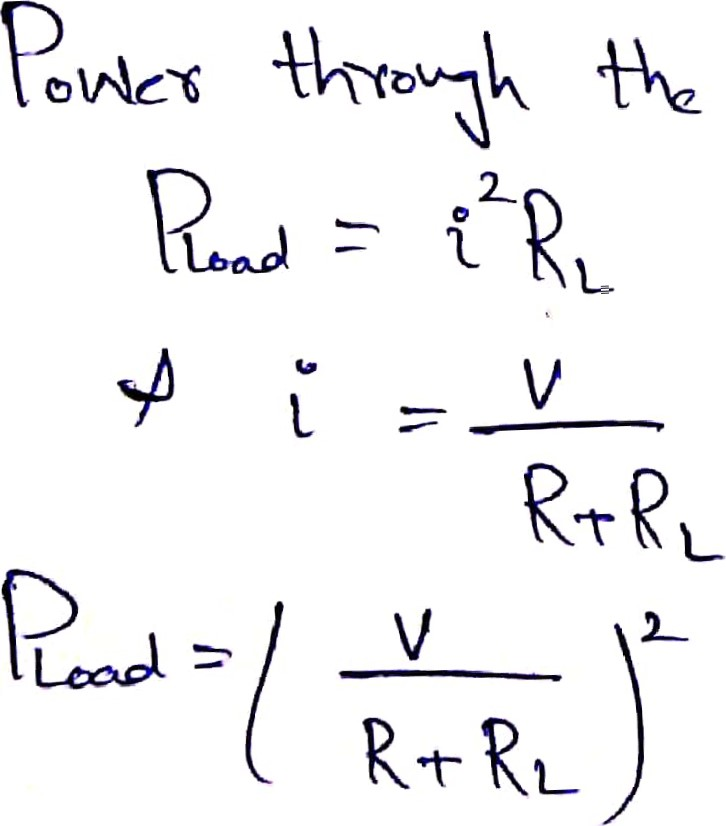 Power through the
P_Load = i²R_L
& i = V / (R + R_L)
P_Load = (V / (R + R_L))²